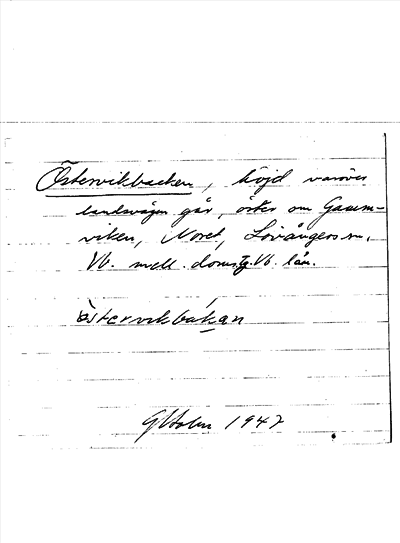 Östervikbacken, höjd varöver
landsvägen går, öster om Gamm-
viken, Noret, Lövångers sn.
Vb. mell. doms. Vb. län.
östervikbákan
GHolm 1947